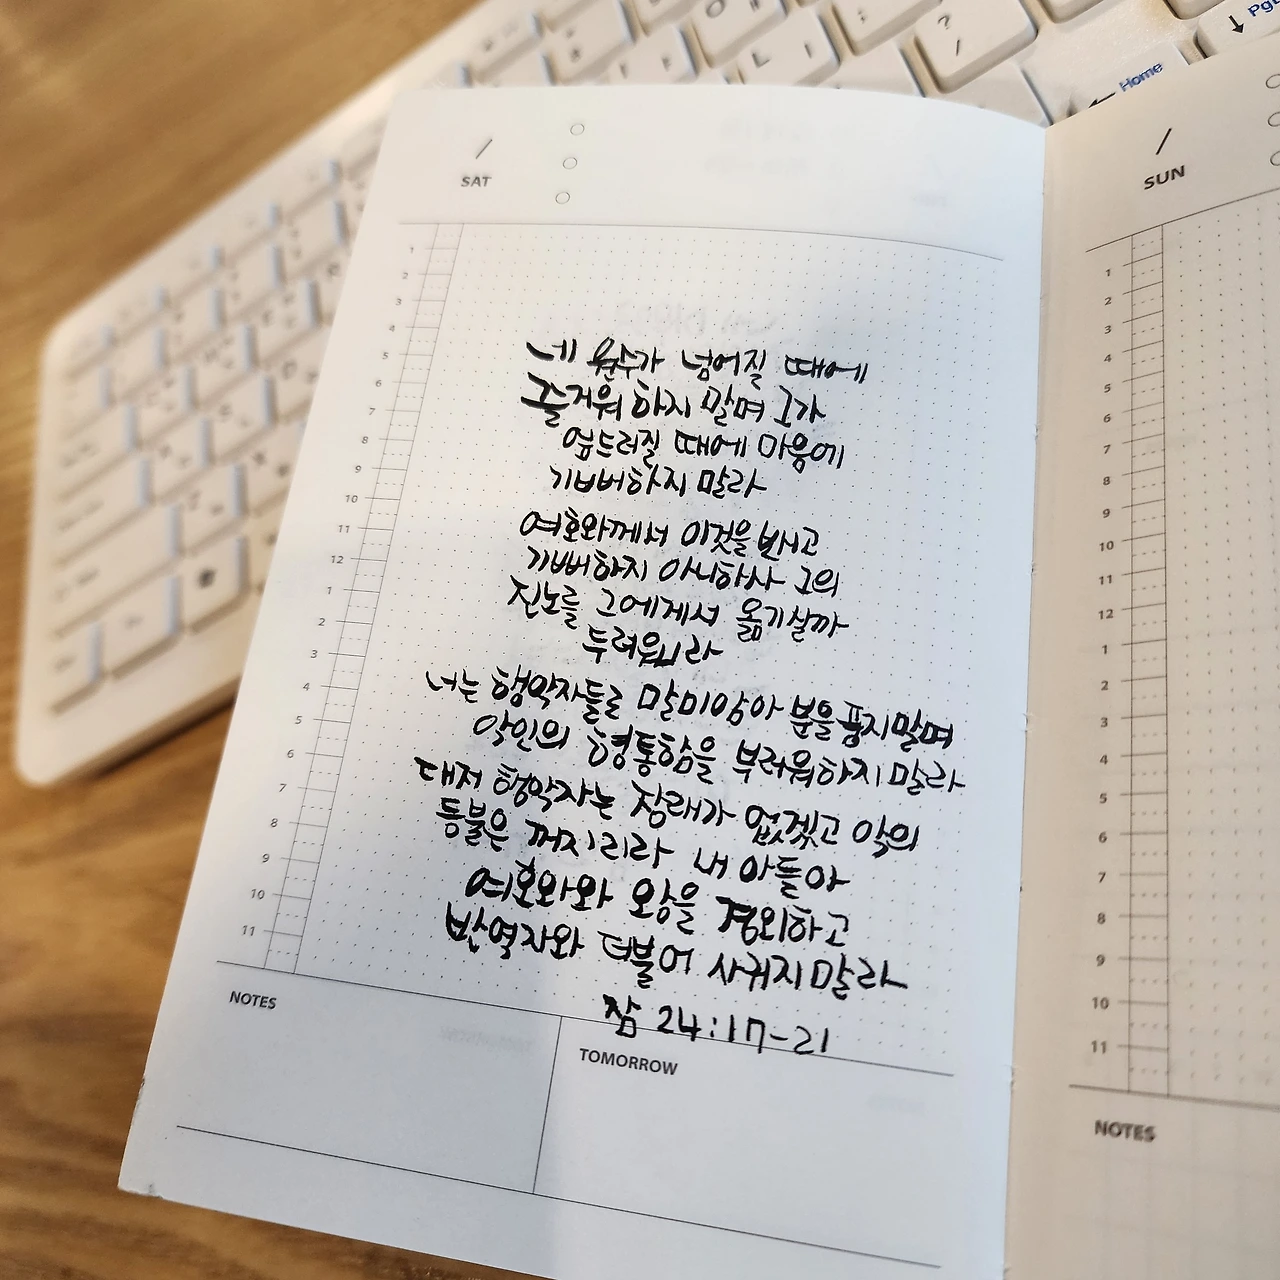 ?
/
Home
←
PgL
↓
/
SAT
/
SUN
네 원수가 넘어질 때에
즐거워 하지 말며 그가
엎드러질 때에 마음에
기뻐하지 말라
여호와께서 이것을 보시고
기뻐하지 아니하사 그의
진노를 그에게서 옮기실까
두려우니라
너는 행악자들로 말미암아 분을 품지말며
악인의 형통함을 부러워하지 말라
대저 행악자는 장래가 없겠고 악의
등불은 꺼지리라 내 아들아
여호와와 왕을 경외하고
반역자와 더불어 사귀지말라
잠 24:17-21
1
2
3
4
5
6
7
8
9
10
11
12
1
2
3
4
5
6
7
8
9
10
11
NOTES
TOMORROW
1
2
3
4
5
6
7
8
9
10
11
12
1
2
3
4
5
6
7
8
9
10
11
NOTES